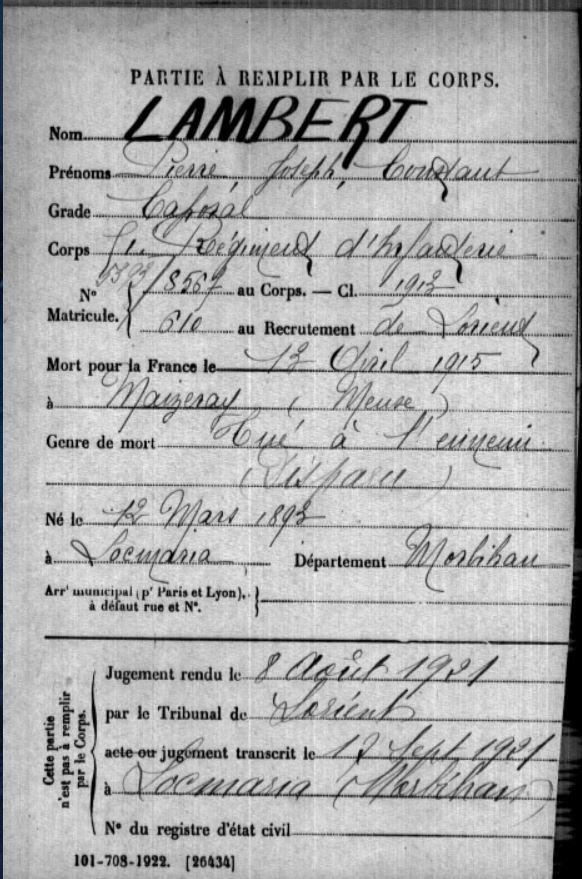 PARTIE À REMPLIR PAR LE CORPS.
Nom LAMBERT
Prénoms Pierre, Joseph, Constant
Grade Caporal
Corps 51e Régiment d'Infanterie
5393
N° Matricule. 8567 au Corps. — Cl. 1913
610 au Recrutement de Lorient
Mort pour la France le 13 Avril 1915
à Maizeray (Meuse)
Genre de mort Tué à l'ennemi
(Disparu)
Né le 12 Mars 1893
à Locmaria Département Morbihan
Arrt municipal (pr Paris et Lyon), à défaut rue et N°.
Cette partie n'est pas à remplir par le Corps.
Jugement rendu le 8 Août 1921
par le Tribunal de Lorient
acte ou jugement transcrit le 17 Sept 1921
à Locmaria (Morbihan)
N° du registre d'état civil
101-708-1922. [26434]